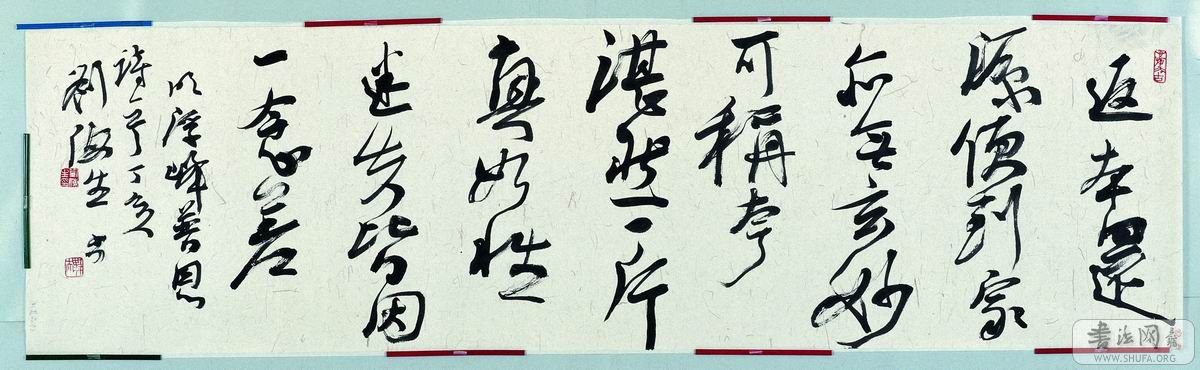 返本還
源便到家
亦無玄妙
可稱夸
湛然一片
真如性
迷失皆因
一念差
明浮峰普恩
詩一首丁亥
劉海生书
書法网
WWW.SHUFA.ORG